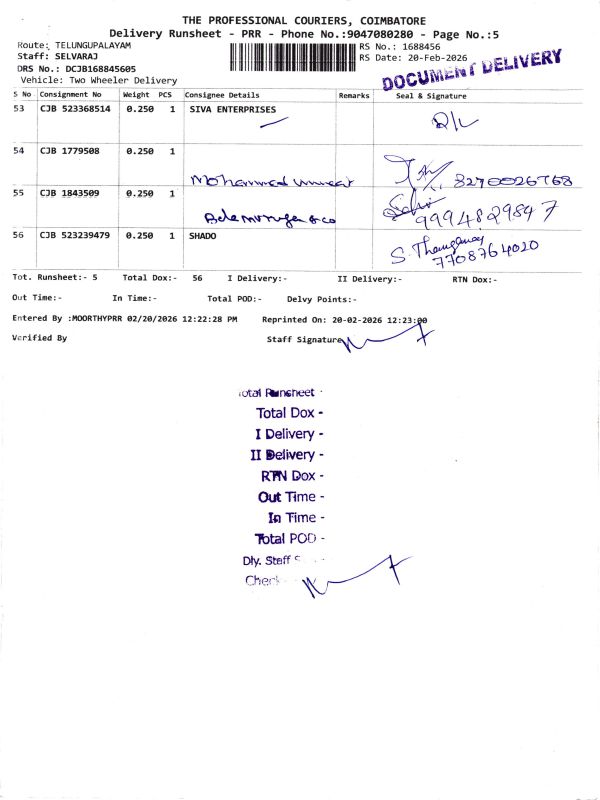 THE PROFESSIONAL COURIERS, COIMBATORE
Delivery Runsheet - PRR - Phone No.:9047080280 - Page No.:5
Route: TELUNGUPALAYAM
RS No.: 1688456
Staff: SELVARAJ
RS Date: 20-Feb-2026
DRS No.: DCJB168845605
DOCUMENT DELIVERY
Vehicle: Two Wheeler Delivery
S No Consignment No Weight PCS Consignee Details Remarks Seal & Signature
53 CJB 523368514 0.250 1 SIVA ENTERPRISES
54 CJB 1779508 0.250 1
Mohammed 8270026768
55 CJB 1843509 0.250 1
9994829847
56 CJB 523239479 0.250 1 SHADO
S. 7708764020
Tot. Runsheet:- 5 Total Dox:- 56 I Delivery:- II Delivery:- RTN Dox:-
Out Time:- In Time:- Total POD:- Delvy Points:-
Entered By :MOORTHYPRR 02/20/2026 12:22:28 PM Reprinted On: 20-02-2026 12:23:00
Verified By Staff Signature
Total Runsheet -
Total Dox -
I Delivery -
II Delivery -
RTN Dox -
Out Time -
In Time -
Total POD -
Dly. Staff
Check